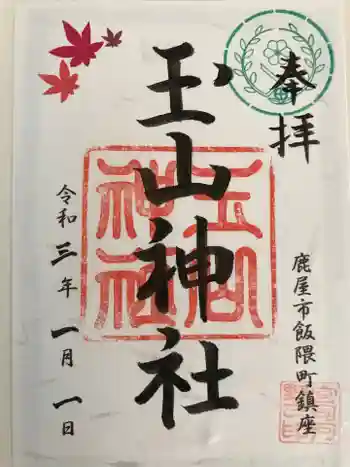 奉拝
鹿屋市飯隈町鎮座
玉山神社
令和三年一月一日
玉山神社